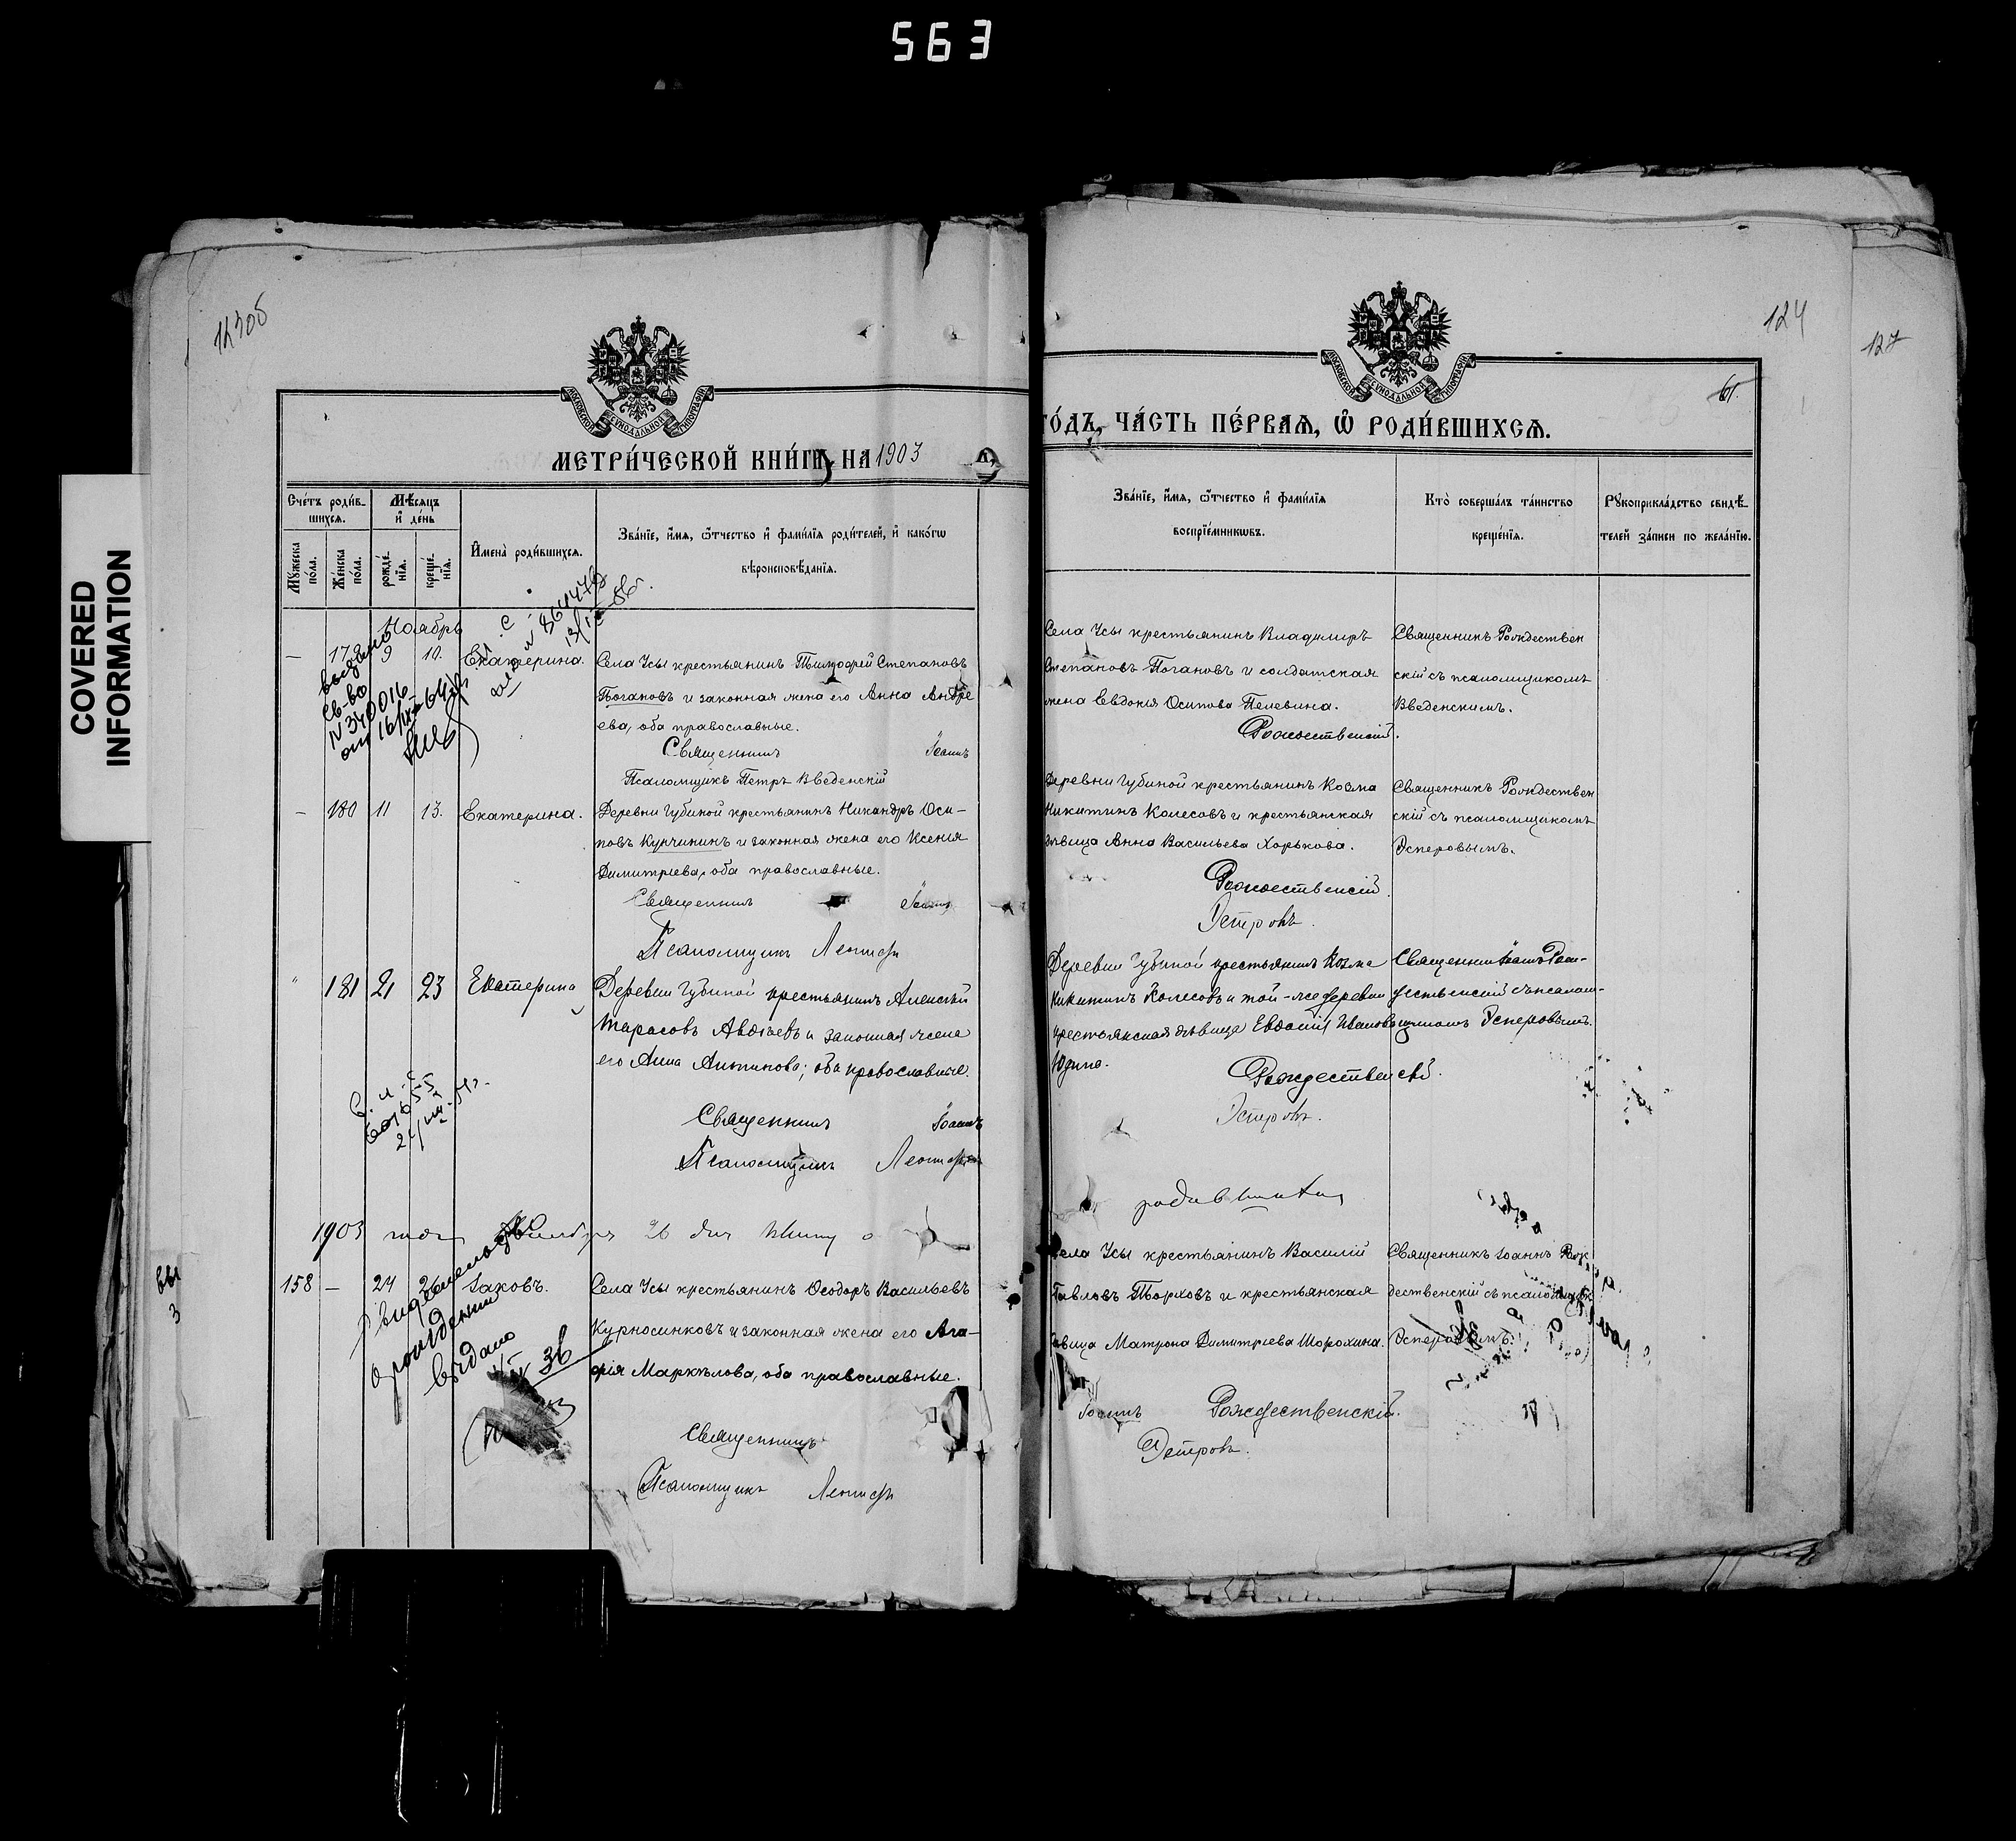 563
COVERED
INFORMATION
124
127
МОСКОВСКОЙ СУНОДАЛЬНОЙ ТИПОГРАФІИ
МОСКОВСКОЙ СУНОДАЛЬНОЙ ТИПОГРАФІИ
МЕТРИ́ЧЕСКОЙ КНИ́ГИ, НА 1903
ГО́ДЪ, ЧА́СТЬ ПЕ́РВАѦ, Ѡ҆ РОДИ́ВШИХСѦ.
Сче́тъ роди́в-
шихсѧ.
Мѣ́сяцъ
и҆ де́нь
Мꙋ́жеска
по́ла.
Же́нска
по́ла.
рожде́-
нїѧ.
креще́-
нїѧ.
И҆мена̀ роди́вшихсѧ.
Зва́нїе, и҆́мѧ, ѻ҆́тчество и҆ фами́лїѧ роди́телей, и҆ како́гѡ
вѣроисповѣ́данїѧ.
Зва́нїе, и҆́мѧ, ѻ҆́тчество и҆ фами́лїѧ
воспрїе́мникѡвъ.
Кто̀ соверша́лъ та́инство
креще́нїѧ.
Рꙋкоприкла́дство свидѣ́-
телей за́писи по жела́нїю.
Ноябрь
9 10. Екатерина.
Села Усы крестьянинъ Тимофей Степановъ
Погановъ и законная жена его Анна Андре
ева, оба православные.
Священникъ Іоаннъ
Псаломщикъ Петръ Введенскій
Села Усы крестьянинъ Владимиръ
Степановъ Погановъ и солдатская
жена Евдокія Осипова Пелевина.
Рождественскій.
Священникъ Рождествен
скій съ псаломщикомъ
Введенскимъ.
выдано
св-во
— 180 11 13. Екатерина.
Деревни Губиной крестьянинъ Никандръ Оси-
повъ Купчининъ и законная жена его Ксенія
Димитріева, оба православные.
Священникъ Іоаннъ
Псаломщикъ
Деревни Губиной крестьянинъ Козма
Никитинъ Колесовъ и крестьянская
дѣвица Анна Васильева Хорькова.
Рождественскій.
Священникъ Рождествен
скій съ псаломщикомъ
Эсперовымъ.
" 181 21 23 Екатерина
Деревни Губиной крестьянинъ Алексѣй
Тарасовъ Авдѣевъ и законная жена
его Анна Антипова; оба православные.
Священникъ Іоаннъ
Псаломщикъ
Деревни Губиной крестьянинъ Козма
Никитинъ Колесовъ и той-же деревни
крестьянская дѣвица Евдокія Иванова
Юдина.
Рождественскій.
Священникъ Іоаннъ Рож-
дественскій съ псалом-
щикомъ Эсперовымъ.
1903 года
родившихся
158 — 24 26 Іаковъ.
Села Усы крестьянинъ Ѳеодоръ Васильевъ
Курносинковъ и законная жена его Ага-
фія Маркелова, оба православные.
Священникъ
Псаломщикъ
Села Усы крестьянинъ Василій
Павловъ Торховъ и крестьянская
дѣвица Матрона Димитріева Шорохина.
Іоаннъ Рождественскій.
Священникъ Іоаннъ Рож
дественскій съ псаломщик
Эсперовымъ.
свидетельство
о рождении
выдано
36